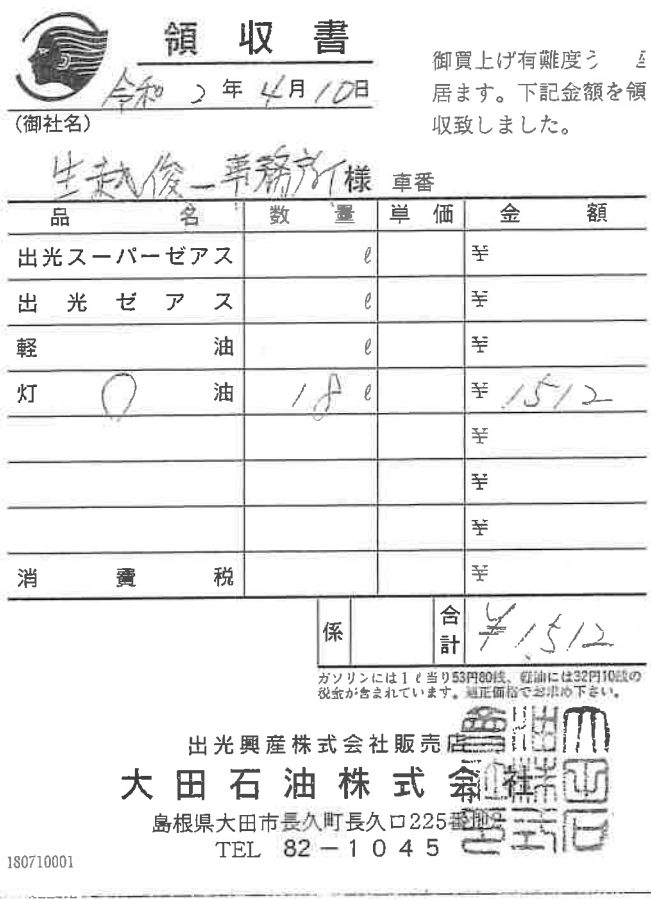 領収書
令和2年4月10日
御買上げ有難度う
居ます。下記金額を領
収致しました。
(御社名)
生越俊一事務所様 車番
品名 数量 単価 金額
出光スーパーゼアス ℓ ¥
出光ゼアス ℓ ¥
軽油 ℓ ¥
灯油 18ℓ ¥1512
¥
¥
¥
消費税 ¥
係 合計 ¥1,512
ガソリンには1ℓ当り53円80銭、軽油には32円10銭の
税金が含まれています。適正価格でお求め下さい。
出光興産株式会社販売店
大田石油株式会社
島根県大田市長久町長久口225番地
TEL 82-1045
180710001